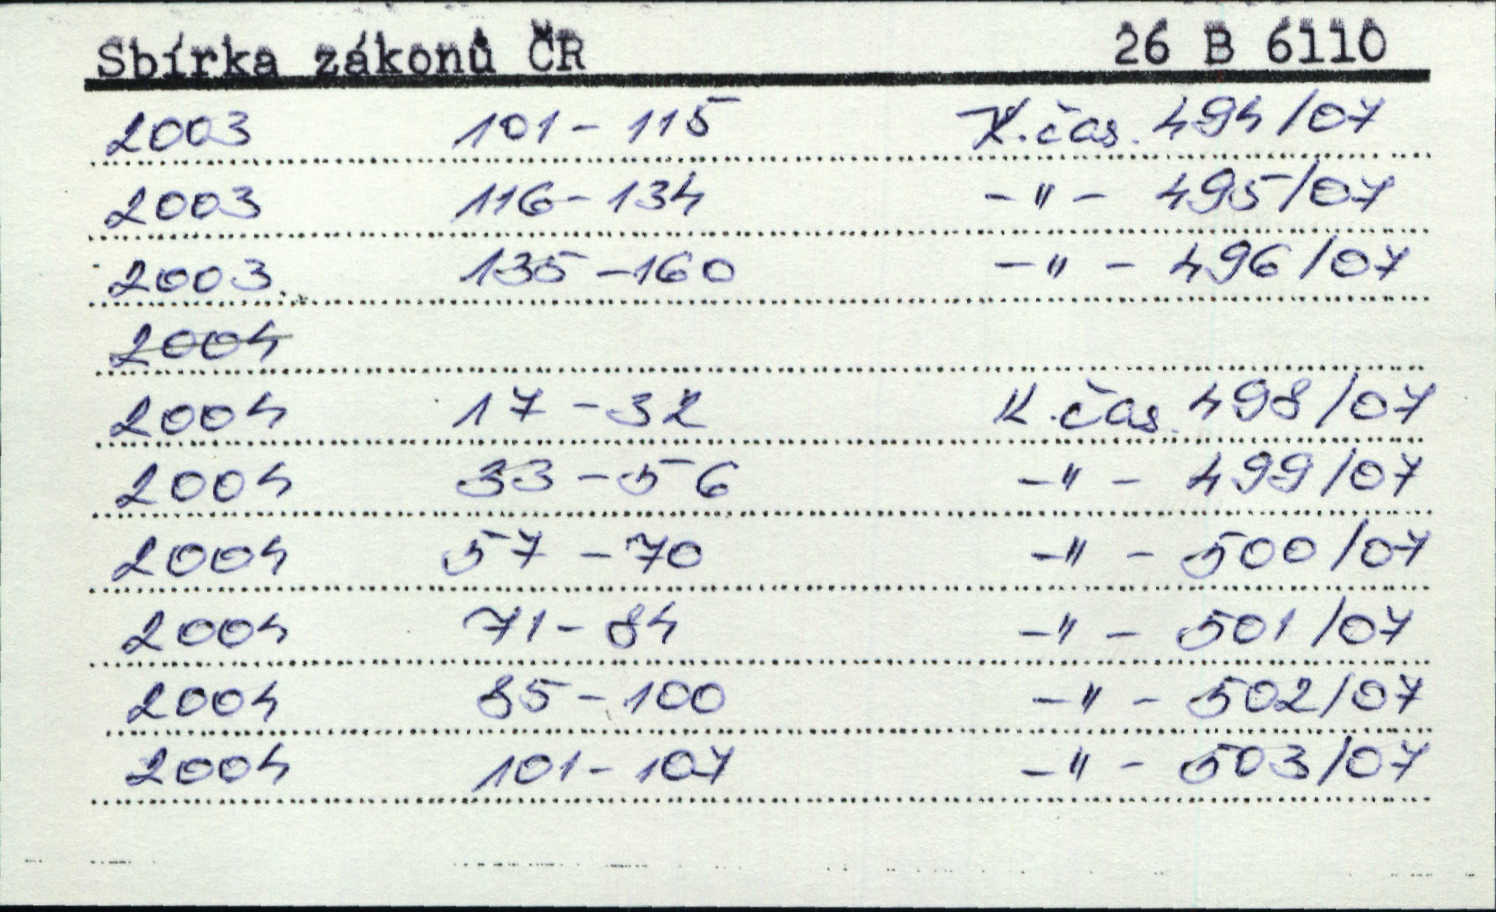 Sbírka zákonů ČR 26 B 6110
2003 101 - 115 K. čas. 494/07
2003 116 - 134 - " - 495/07
2003 135 - 160 - " - 496/07
2004
2004 17 - 32 K. čas. 498/07
2004 33 - 56 - " - 499/07
2004 57 - 70 - " - 500/07
2004 71 - 84 - " - 501/07
2004 85 - 100 - " - 502/07
2004 101 - 107 - " - 503/07